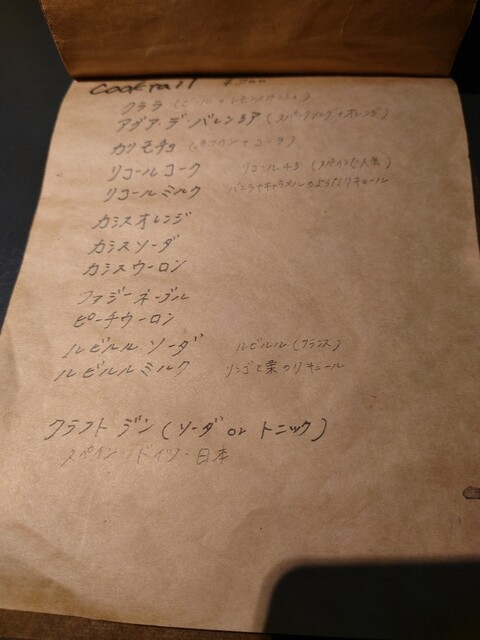 Cocktail
クララ (ビール+レモン
アグア・デ・バレンシア (スパークリング+オレンジ)
カリモチョ (赤ワイン+コーラ)
リコールコーク リコール43 (スペインで人気)
リコールミルク バニラやキャラメルのようなリキュール
カシスオレンジ
カシスソーダ
カシスウーロン
ファジーネーブル
ピーチウーロン
ルビルル ソーダ ルビルル (フランス)
ルビルルミルク リンゴと栗のリキュール
クラフト ジン (ソーダ or トニック)
スペイン・ドイツ・日本